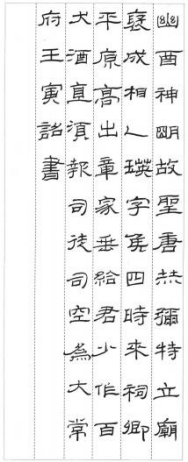 幽酉神明故聖唐恭彌特立廟
褒成相乙瑛字侯四時來祠鄉
平原高出章家垂給君少作百
犬酒直須報司徒司空為大常
府壬寅詔書